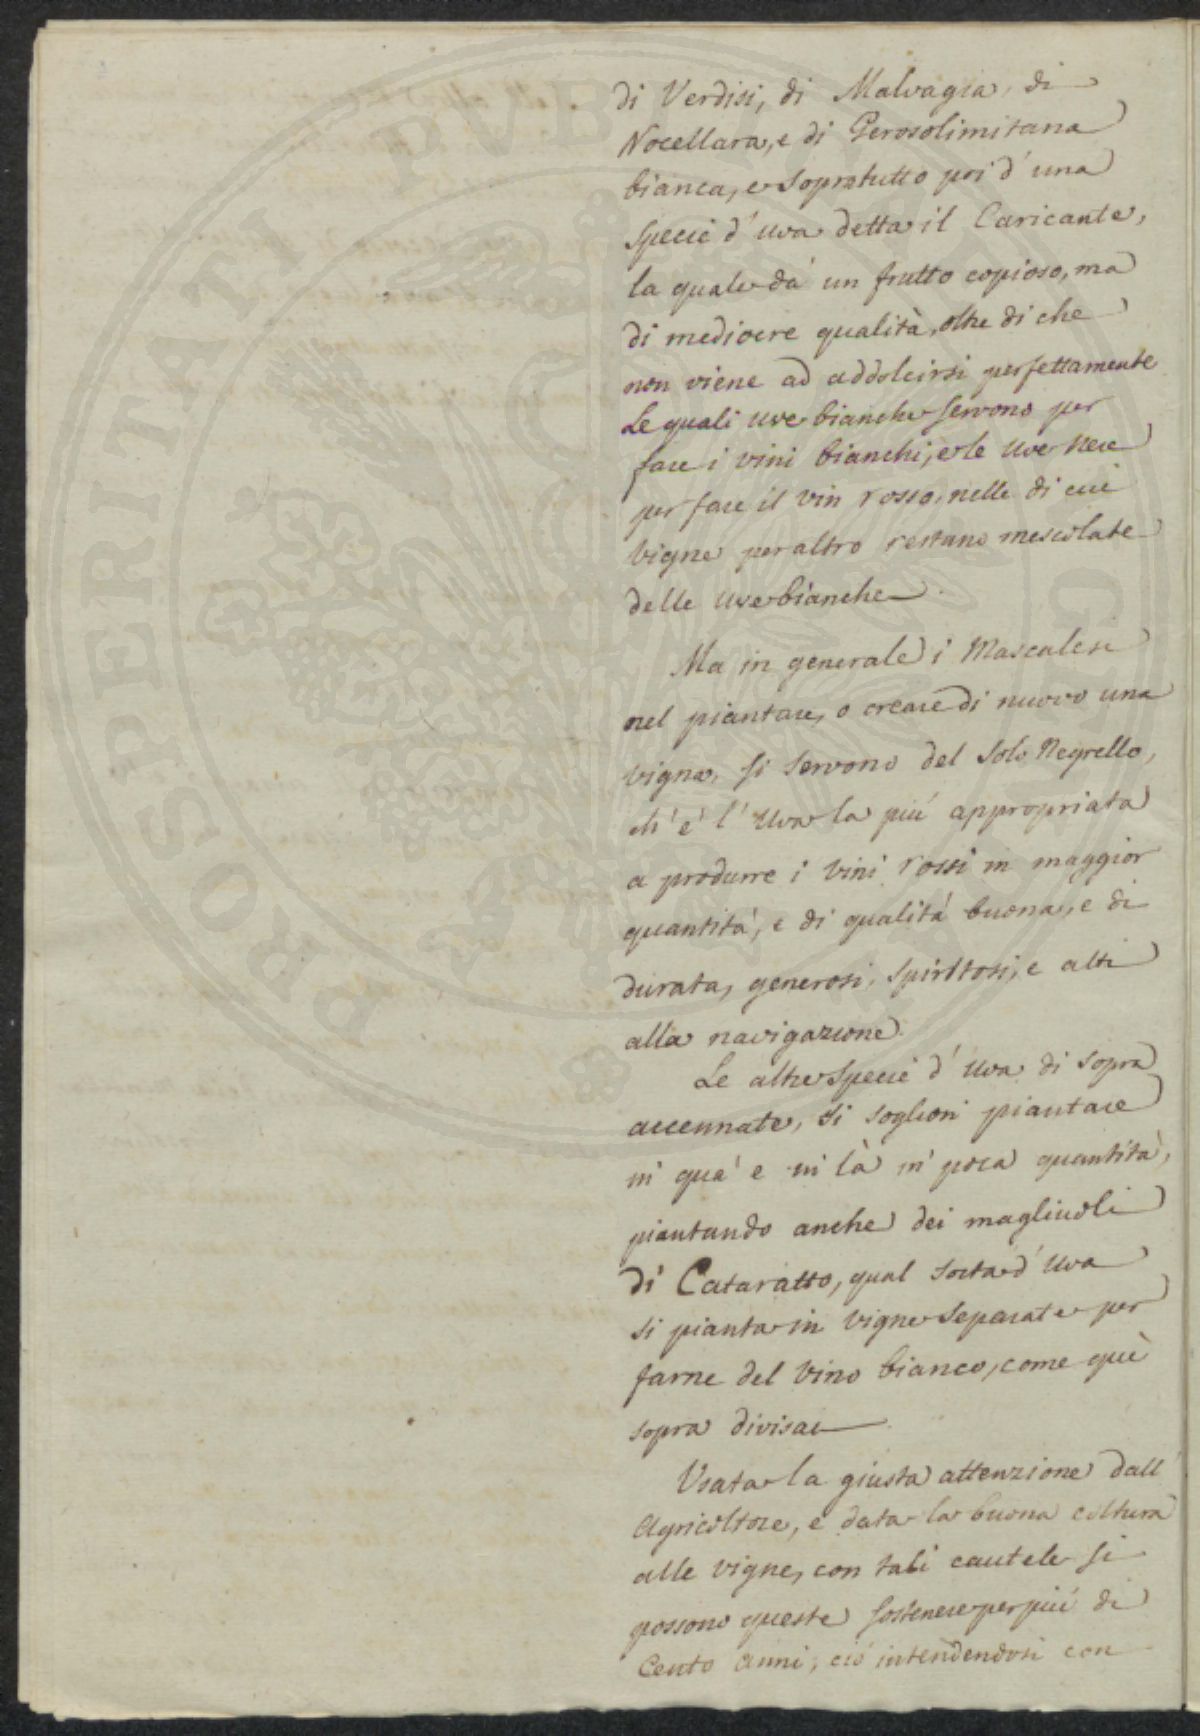 di Verdisi, di Malvagia, di
Nocellara, e di Gerosolimitana
bianca, e sopratutto poi d'una
specie d'uva detta il Caricante,
la quale dà un frutto copioso, ma
di mediocre qualità, oltre di che
non viene ad addolcirsi perfettamente
Le quali uve bianche servono per
fare i vini bianchi, e le uve nere
per fare il vin rosso, nelle di cui
vigne peraltro restano mescolate
delle uve bianche.
Ma in generale i Mascalesi
nel piantare, o creare di nuovo una
vigna, si servono del solo Negrello,
ch'é l'uva la piú appropriata
a produrre i vini rossi in maggior
quantitá, e di qualitá buona, e di
durata, generosi, spiritosi, e atti
alla navigazione.
Le altre specie d'uva di sopra
accennate, si soglion piantare
in quá e in là in poca quantità,
piantando anche dei magliuoli
di Cataratto, qual sorta d'uva
si pianta in vigne separate per
farne del vino bianco, come quì
sopra divisai
Usata la giusta attenzione dall'
Agricoltore, e data la buona coltura
alle vigne, con tali cautele si
possono queste sostenere per piú di
Cento anni, ció intendendosi con
PROSPERITATI PVBLICAE